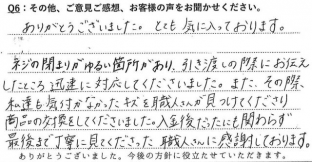 Q6：その他、ご意見ご感想、お客様の声をお聞かせください。
ありがとうございました。とても気に入っております。
ネジの閉まりがゆるい箇所があり、引き渡しの際にお伝え
したところ迅速に対応してくださいました。また、その際、
私達も気付かなかったキズを職人さんが見つけてくださり
商品の交換をしてくださいました。入金後だったにも関わらず
最後まで丁寧に見てくださった職人さんに感謝しております。
ありがとうございました。今後の方針に役立たせていただきます。